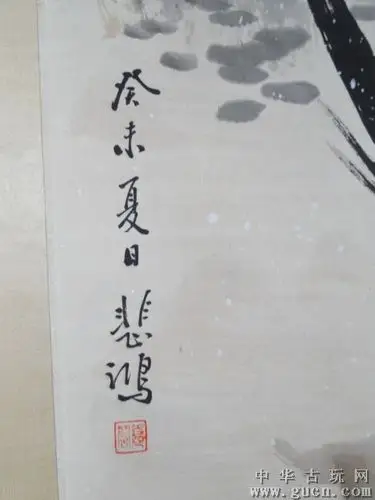 癸未夏日悲鸿
中华古玩网
www.gucn.com